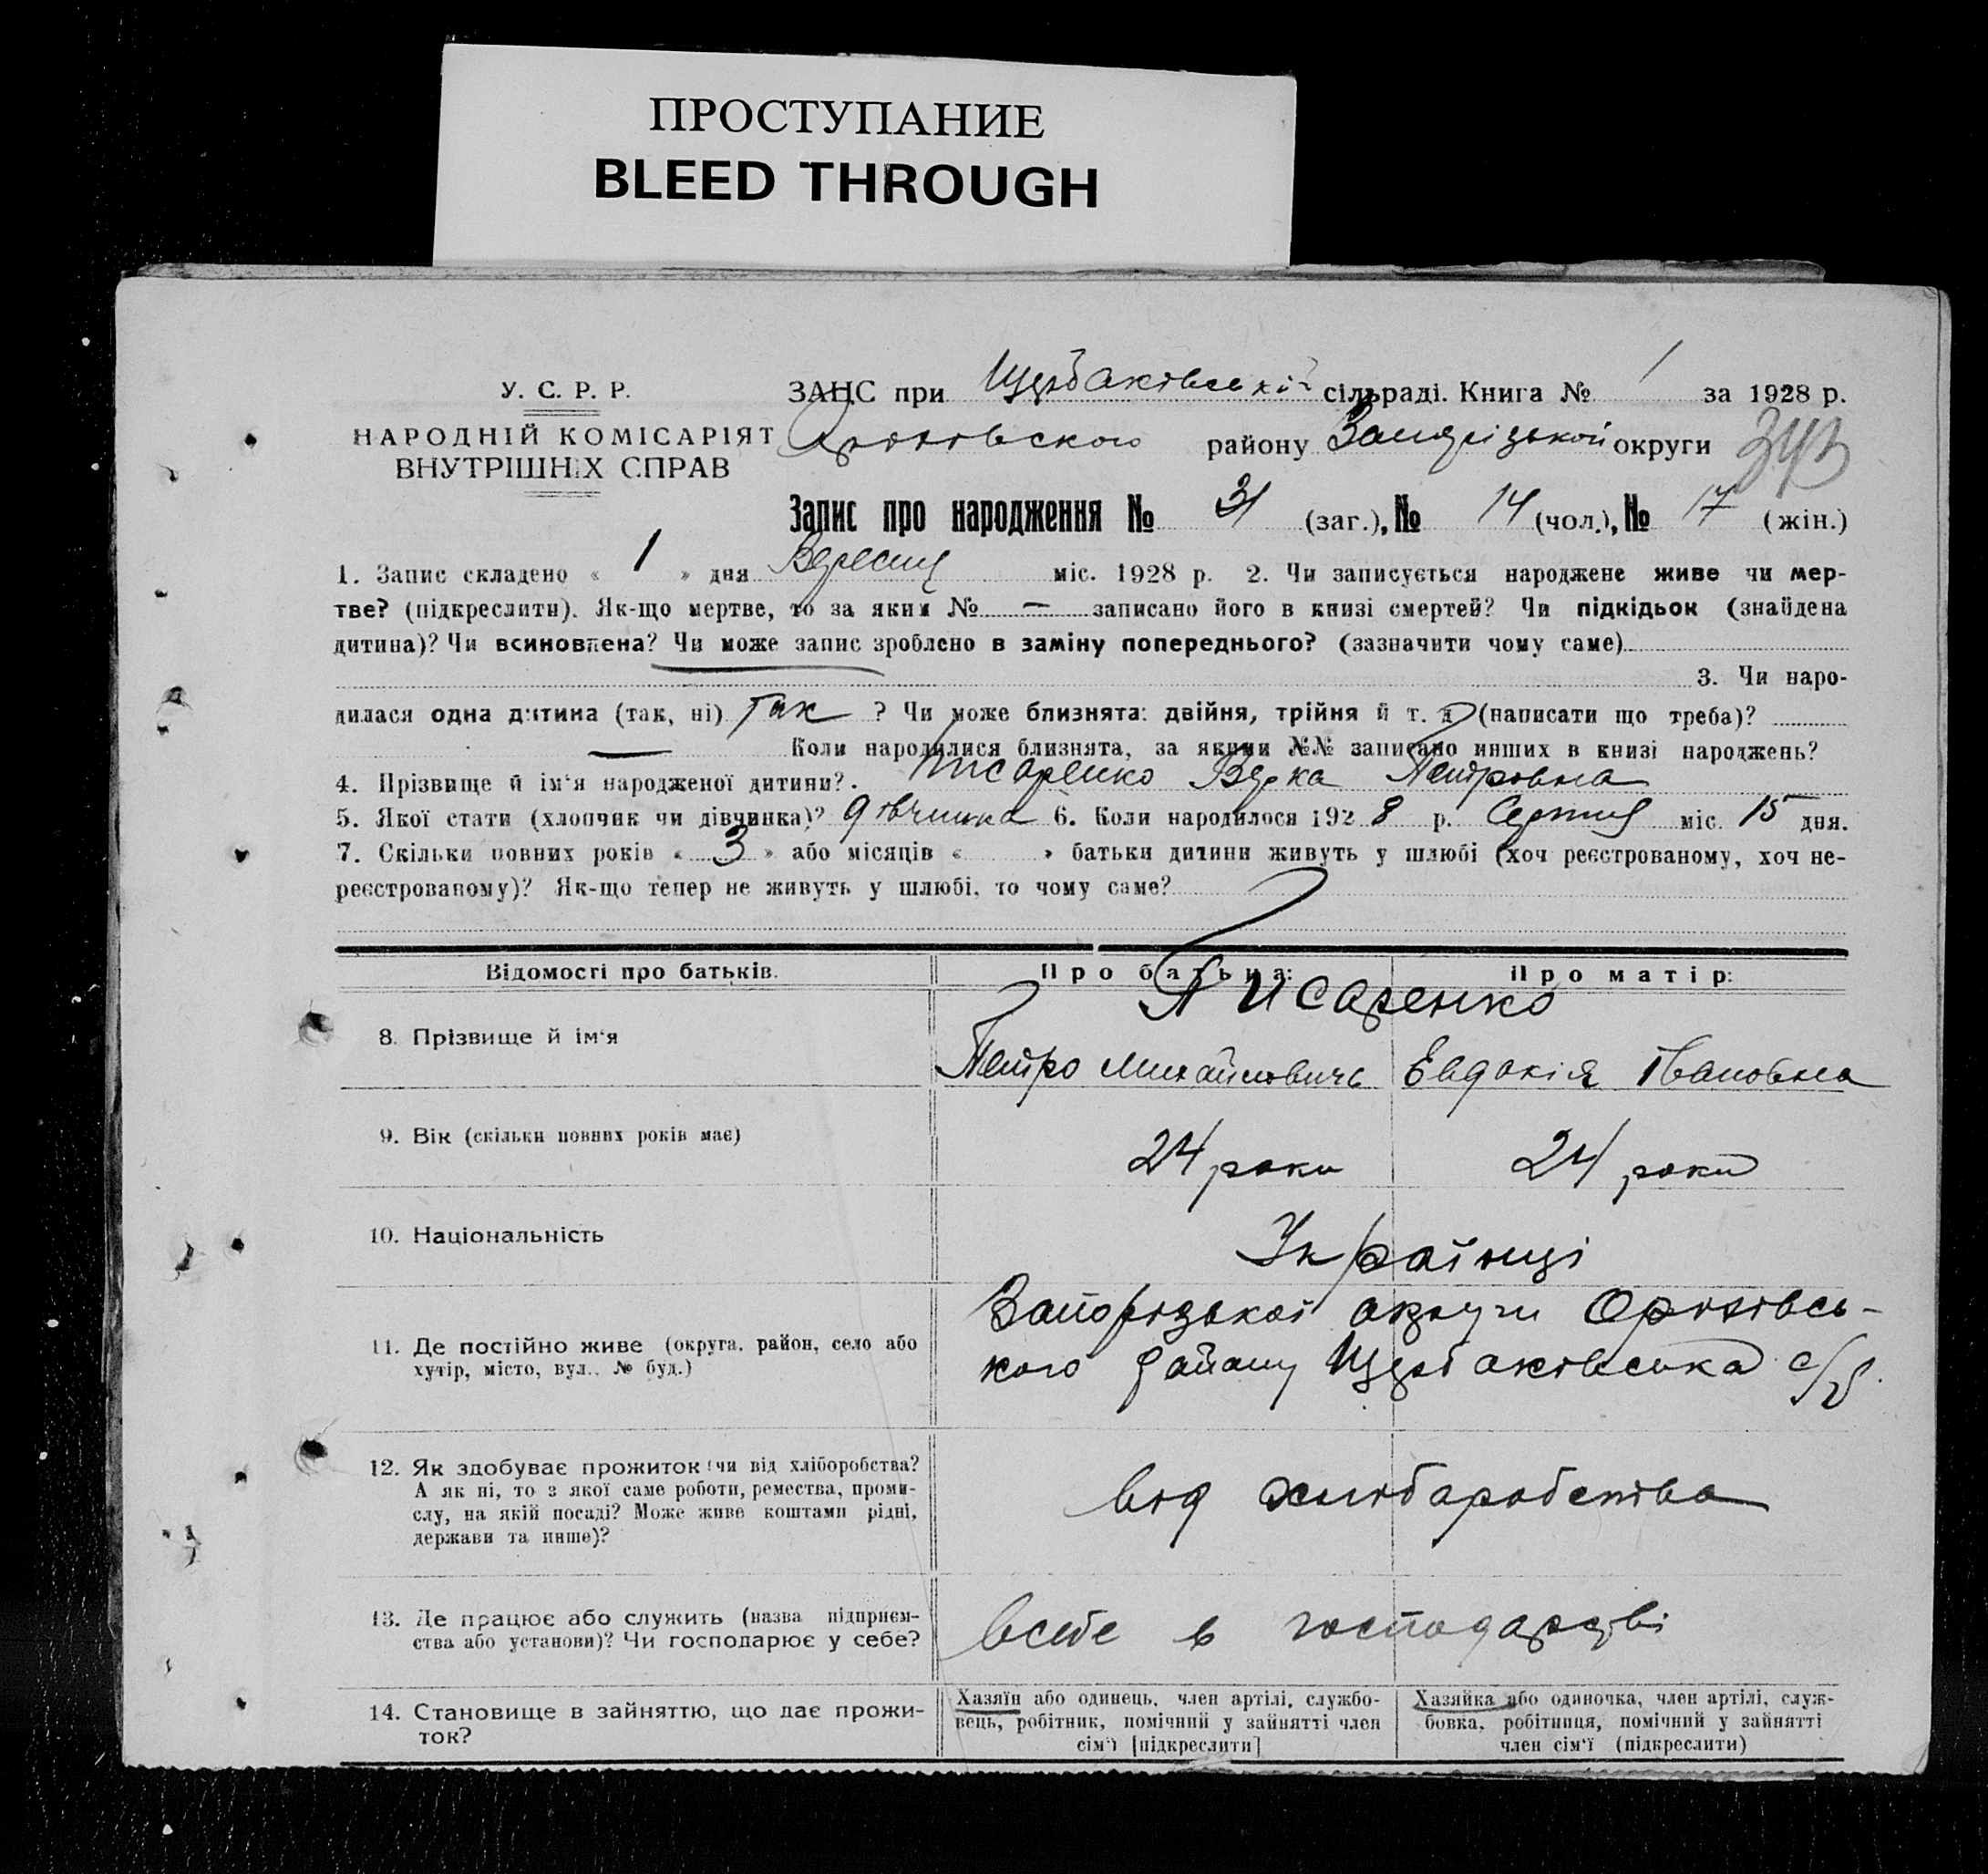 ПРОСТУПАНИЕ
BLEED THROUGH
У. С. Р. Р.
НАРОДНІЙ КОМІСАРІЯТ
ВНУТРІШНІХ СПРАВ
ЗАЦС при Щербаківській сільраді. Книга № 1 за 1928 р.
району Запорізької округи 343
Запис про народження № 31 (заг.), № 14 (чол.), № 17 (жін.)
1. Запис складено « 1 » дня Вересня міс. 1928 р. 2. Чи записується народжене живе чи мер-
тве? (підкреслити). Як-що мертве, то за яким № — записано його в книзі смертей? Чи підкідьок (знайдена
дитина)? Чи всиновлена? Чи може запис зроблено в заміну попереднього? (зазначити чому саме)
3. Чи наро-
дилася одна дитина (так, ні) Так ? Чи може близнята: двійня, трійня й т. д (написати що треба)?
— Коли народилися близнята, за якими №№ записано инших в книзі народжень?
4. Прізвище й ім'я народженої дитини?. Писаренко Вєрка Петровна
5. Якої стати (хлопчик чи дівчинка)? дівчинка 6. Коли народилося 1928 р. Серпня міс. 15 дня.
7. Скільки повних років « 3 » або місяців « » батьки дитини живуть у шлюбі (хоч реєстрованому, хоч не-
реєстрованому)? Як-що тепер не живуть у шлюбі, то чому саме?
Відомості про батьків. Про батька: Про матір:
Писаренко
8. Прізвище й ім'я
Петро Михайловичь Евдокія Івановна
9. Вік (скільки повних років має)
24 роки 24 роки
10. Національність
Українці
Запорізької округи Оріхівсь-
11. Де постійно живе (округа, район, село або
хутір, місто, вул., № буд.)
кого району Щербаківська с/р.
12. Як здобуває прожиток (чи від хліборобства?
А як ні, то з якої саме роботи, ремества, проми-
слу, на якій посаді? Може живе коштами рідні,
держави та инше)?
від хліборобства
13. Де працює або служить (назва підприєм-
ства або установи)? Чи господарює у себе?
всебе в господарстві
14. Становище в зайняттю, що дає прожи-
ток?
Хазяїн або одинець, член артілі, службо-
вець, робітник, помічний у зайнятті член
сім'ї [підкреслити]
Хазяйка або одиночка, член артілі, служ-
бовка, робітниця, помічний у зайнятті
член сім'ї (підкреслити)